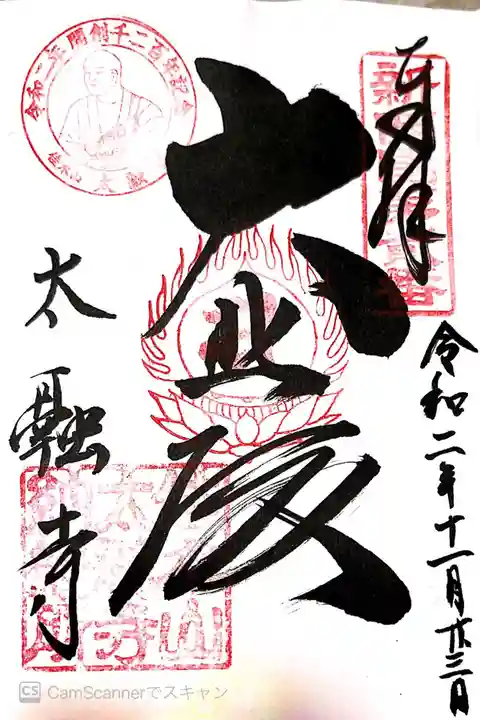 奉拝
令和二年十一月廿三日
大悲殿
太融寺
令和二年 開創千二百年記念
佳木山 太融寺
CamScannerでスキャン